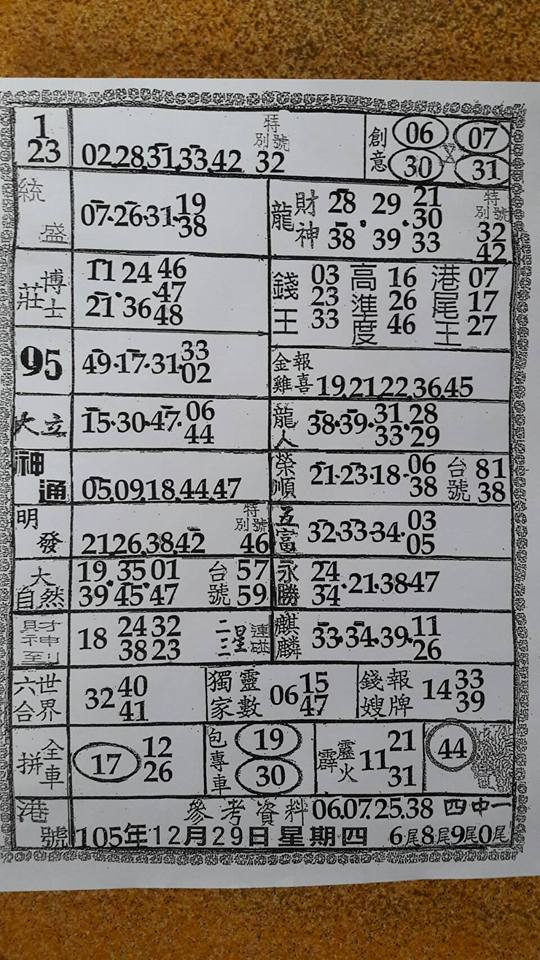 1
23
02.28.31.33.42
特別號
32
創意
06 07
30 31
統盛
07.26.31.19
38
龍
財神
28 29 21
30
38 39 33
特別號
32
42
莊
博士
11 24 46
47
21 36 48
錢王
03
23
33
高準度
16
26
46
港尾王
07
17
27
95
49.17.31.33
02
金雞報喜
19.21.22.36.45
大立
15.30.47.06
44
龍人
38.39.31.28
33.29
神通
05.09.18.44.47
榮順
21.23.18.06
38
台號
81
38
明發
21.26.38.42
特別號
46
五富
32.33.34.03
05
大自然
19.35.01
39.45.47
台號
57
59
永勝
24
34
.21.38.47
財神到
18 24 32
38 23
二三星連碰
麒麟
33.34.39.11
26
六合世界
32 40
41
獨家靈數
06 15
47
錢嫂報牌
14 33
39
全車拼
17 12
26
包專車
19
30
霹靂火
11 21
31
44
港號
參考資料 06.07.25.38 四中一
105年12月29日星期四 6尾8尾9尾0尾